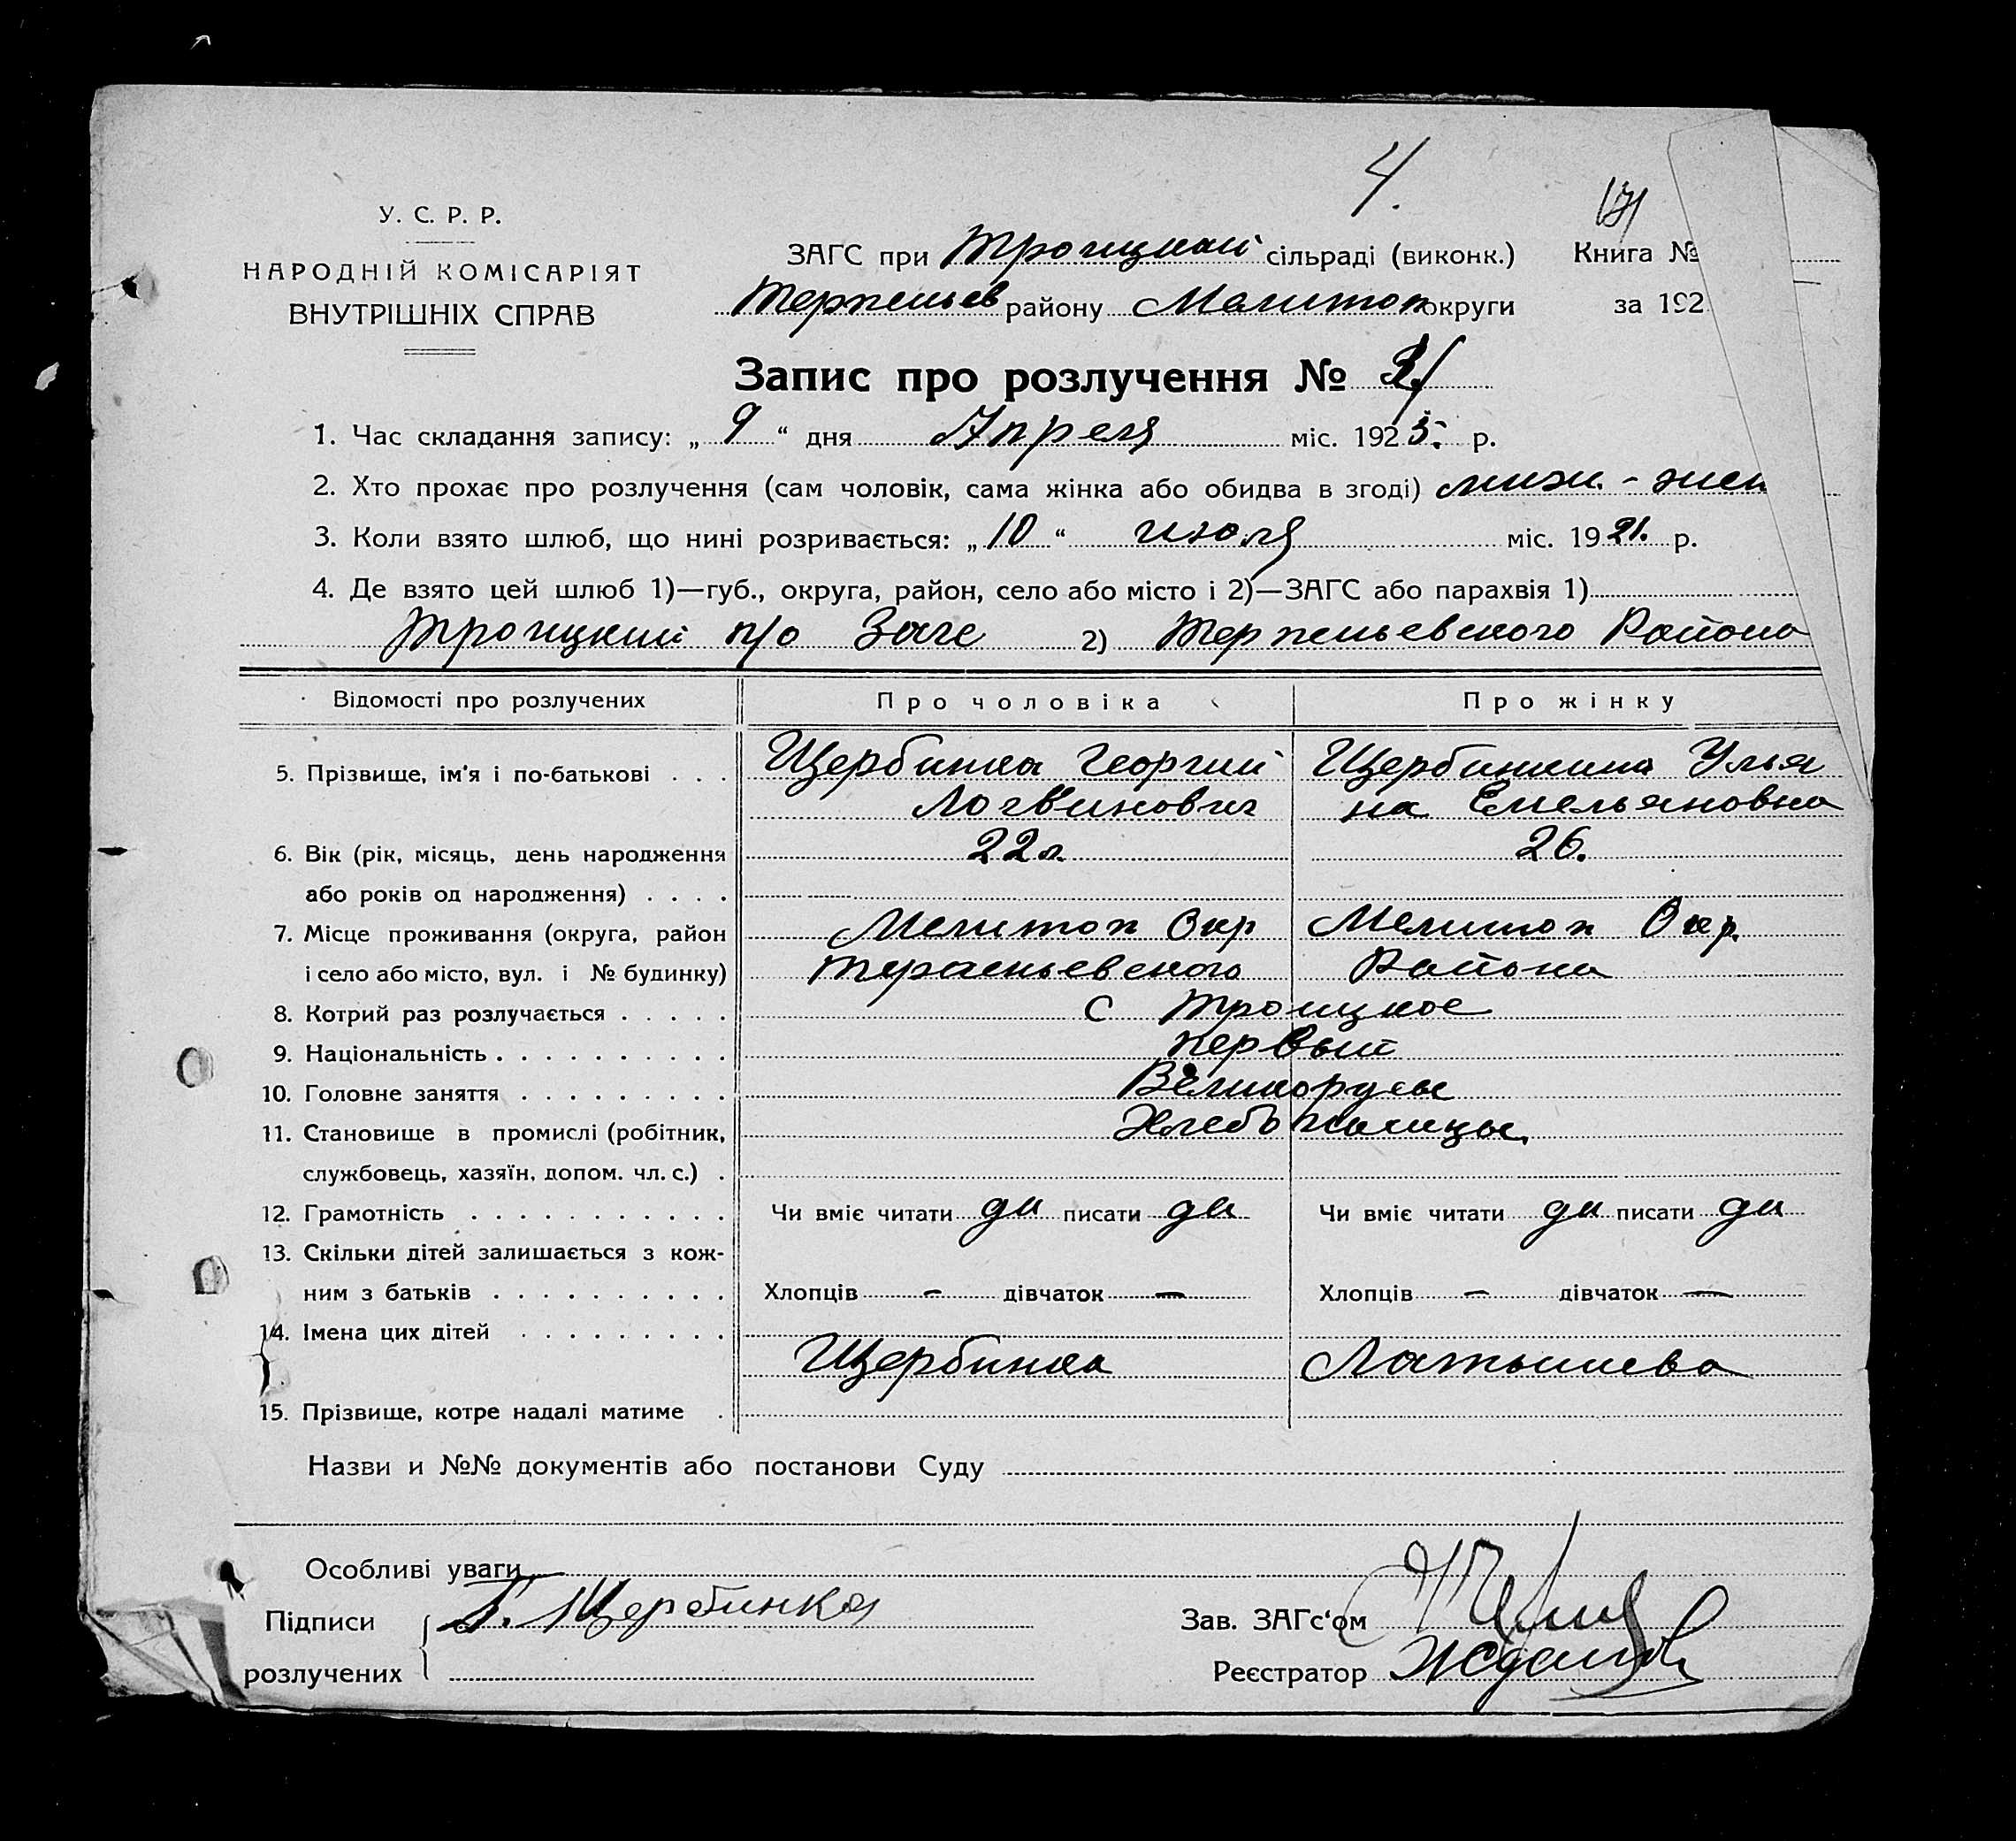 4.
У. С. Р. Р.
НАРОДНІЙ КОМІСАРІЯТ
ВНУТРІШНІХ СПРАВ
ЗАГС при Троицкой сільраді (виконк.) Книга №
Терпеньев району Мелитоп округи за 192
Запис про розлучення №
1. Час складання запису: „ 9 “ дня Апреля міс. 1925. р.
2. Хто прохає про розлучення (сам чоловік, сама жінка або обидва в згоді)
3. Коли взято шлюб, що нині розривається: „ 10 “ июля міс. 1921. р.
4. Де взято цей шлюб 1)—губ., округа, район, село або місто і 2)—ЗАГС або парахвія 1)
Троицкий п/о Загс 2) Терпеньевского Района
Відомості про розлучених Про чоловіка Про жінку
5. Прізвище, ім'я і по-батькові . . . Щербинка Георгий Щербинкина Улья
Логвинович на Емельяновна
6. Вік (рік, місяць, день народження 22 л. 26.
або років од народження) . . . .
7. Місце проживання (округа, район Мелитоп Окр Мелитоп Окр.
і село або місто, вул. і № будинку) Терпеньевского Района
8. Котрий раз розлучається . . . . . С Троицкое
9. Національність . . . . . . . . . . первый
10. Головне заняття . . . . . . . . . Великорусы
11. Становище в промислі (робітник, Хлебопашцы.
службовець, хазяїн, допом. чл. с.) .
12. Грамотність . . . . . . . . . . . Чи вміє читати да писати да Чи вміє читати да писати да
13. Скільки дітей залишається з кож-
ним з батьків . . . . . . . . . . Хлопців — дівчаток — Хлопців — дівчаток —
14. Імена цих дітей . . . . . . . . .
Щербинка Латышева
15. Прізвище, котре надалі матиме .
Назви и №№ документів або постанови Суду
Особливі уваги
Підписи Г. Щербинка Зав. ЗАГс'ом
розлучених Реєстратор Жданов